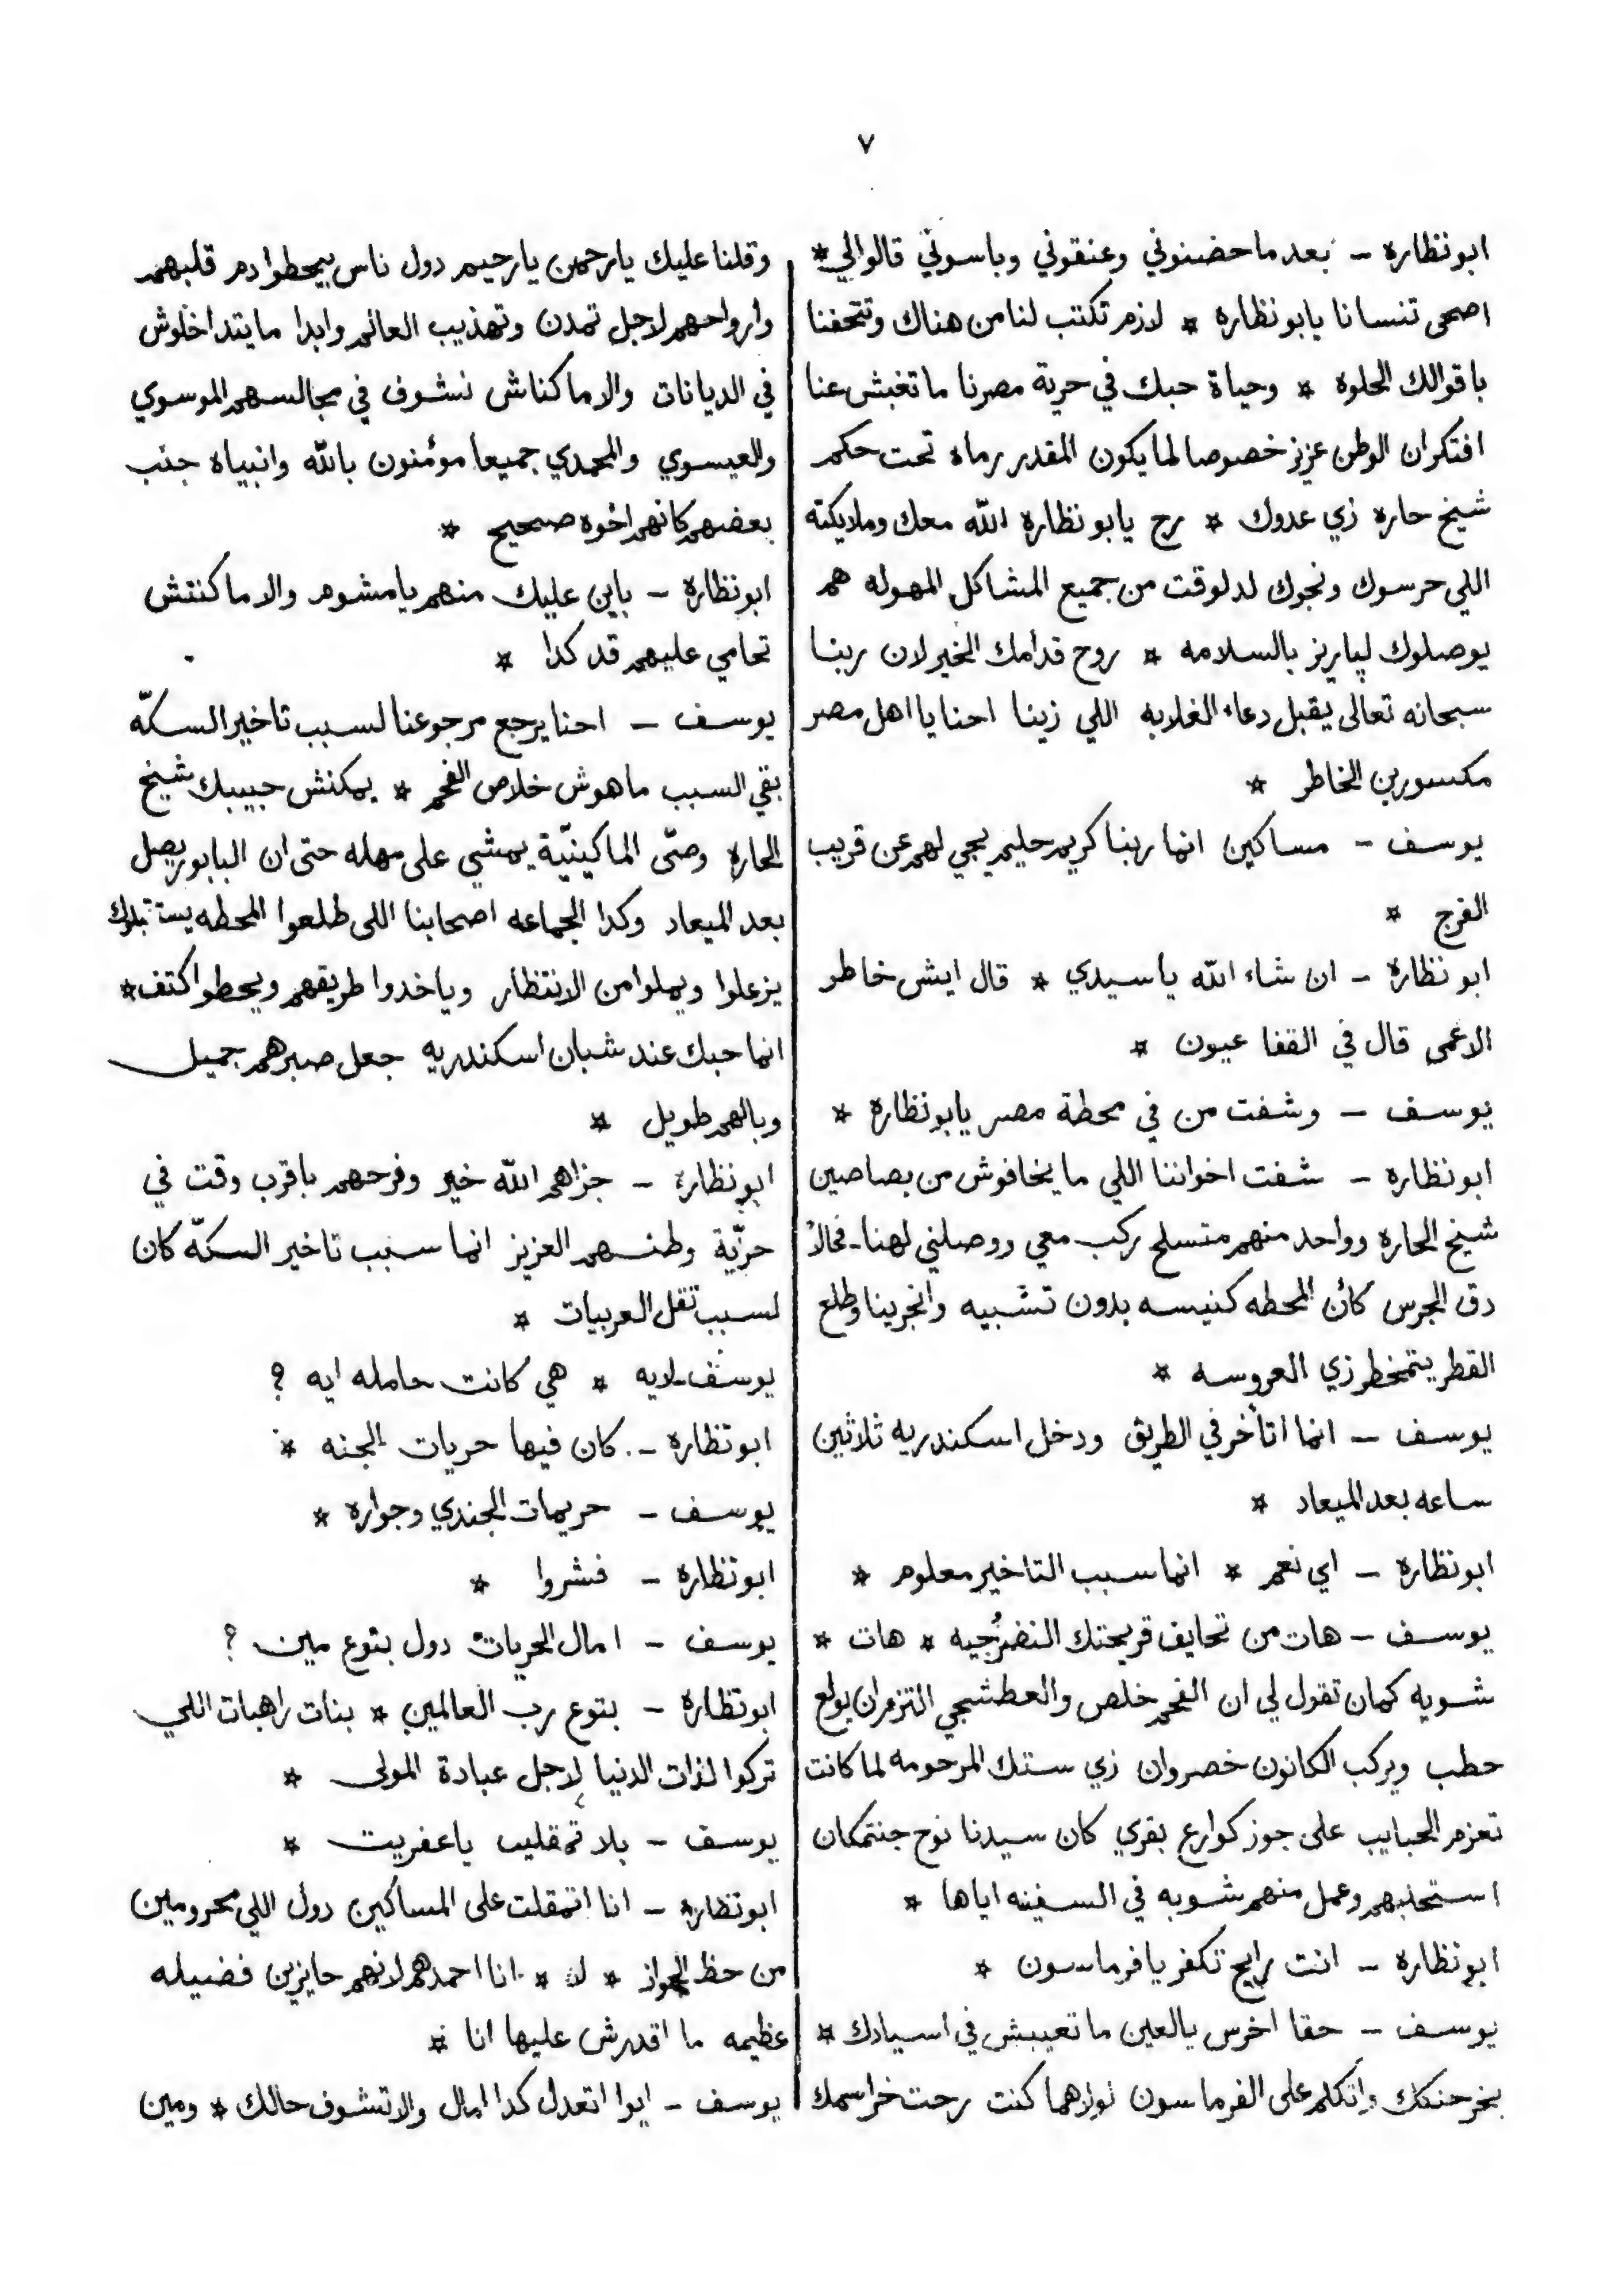 ٧
ابونظاره - بعد ماحضنوني وعنقوني وباسوني قالوالي *
اصحى تنسانا يابونظاره * لازم تكتب لنا من هناك وتتحفنا
باقوالك الحلوه * وحياة حبك في حرية مصرنا ماتغبش عنا
افتكران الوطن عزيز خصوصا لما يكون المقدر رماه تحت حكم
شيخ حاره زي عدوك * رح يابونظاره الله معك وملايكته
اللي حرسوك ونجوك لدلوقت من جميع المشاكل المهوله هم
يوصلوك لپاريز بالسلامه * روح قدامك الخير لان ربنا
سبحانه تعالى يقبل دعاء الغلابه اللي زينا احنا يا اهل مصر
مكسورين الخاطر *
يوسف - مساكين انما ربنا كريم حليم يجي لهم عن قريب
الفرج *
ابونظاره - ان شاء الله ياسيدي * قال ايش خاطر
الاعمى قال في القفا عيون *
يوسف - وشفت من في محطة مصر يابونظاره *
ابونظاره - شفت اخواننا اللي مايخافوش من بصاصين
شيخ الحاره وواحد منهم متسلح ركب معي ووصلني لهنا - فحالاً
دق الجرس كأن المحطه كنيسه بدون تشبيه وانجرينا وطلع
القطر يتمخطر زي العروسه *
يوسف - انما اتأخر في الطريق ودخل اسكندريه ثلاثين
ساعه بعد الميعاد *
ابونظاره - اي نعم * انما سبب التاخير معلوم *
يوسف - هات من تحايف قريحتك النضرجيه * هات *
شويه كمان تقول لي ان الفحم خلص والعطشجي التزم ان يولع
حطب ويركب الكانون خصروان زي ستك المرحومه لما كانت
تعزم الحبايب على جوز كوارع بقري كان سيدنا نوح جنتمكان
استحلبهم وعمل منهم شوربه في السفينه اياها *
ابونظاره - انت رايح تكفر يافرماسون *
يوسف - حقا اخرس يالعين ماتعيبش في اسيادك *
بخر حنكك واتكلم على الفرماسون لولاهما كنت رحت خراسمك
وقلنا عليك يارحمن يارحيم دول ناس بيحطوا دم قلبهم
وارواحهم لاجل تمدن وتهذيب العالم وابدا مايتداخلوش
في الديانات والا ماكناش نشوف في مجالسهم الموسوي
والعيسوي والمحمدي جميعا مؤمنون بالله وانبياه جنب
بعضهم كانهم اخوه صحيح *
ابونظاره - باين عليك منهم يامشوم والا ماكنتش
تحامي عليهم قد كدا *
يوسف - احنا يرجع مرجوعنا لسبب تاخير السكّه
بقي السبب ماهوش خلاص الفحم * يمكنش حبيبك شيخ
الحاره وصّى الماكينيّة يمشي على مهله حتى ان البابور يصل
بعد الميعاد وكدا الجماعه اصحابنا اللي طلعوا المحطه يستقبلوك
يزعلوا ويملوا من الانتظار وياخدوا طريقهم ويحطوا كتف *
انما حبك عند شبان اسكندريه جعل صبرهم جميل
وبالهم طويل *
ابونظاره - جزاهم الله خير وفرحهم باقرب وقت في
حرّية وطنهم العزيز انما سبب تاخير السكّه كان
لسبب تقل العربيات *
يوسف - لايه * هي كانت حامله ايه ?
ابونظاره - كان فيها حريات الجنه *
يوسف - حريمات الجندي وجواره *
ابونظاره - فشروا *
يوسف - امال الحريات دول بتوع مين ?
ابونظاره - بتوع رب العالمين * بنات راهبات اللي
تركوا لذات الدنيا لاجل عبادة المولى *
يوسف - بلا تمقليت ياعفريت *
ابونظاره - انا اتمقلت على المساكين دول اللي محرومين
من حظ الجواز * لا * انا احمدهم لانهم حايزين فضيله
عظيمه ما اقدرش عليها انا *
يوسف - ايوا اتعدل كدا امال والا تشوف حالك * ومين